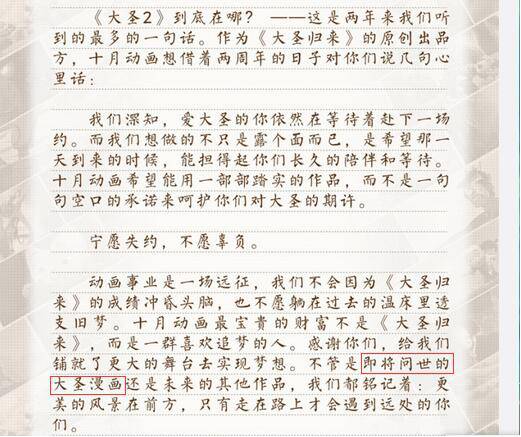 《大圣2》到底在哪？——这是两年来我们听
到的最多的一句话。作为《大圣归来》的原创出品
方，十月动画想借着两周年的日子对你们说几句心
里话：
我们深知，爱大圣的你依然在等待着赴下一场
约。而我们想做的不只是露个面而已，是希望那一
天到来的时候，能担得起你们长久的陪伴和等待。
十月动画希望能用一部部踏实的作品，而不是一句
句空口的承诺来呵护你们对大圣的期许。
宁愿失约，不愿辜负。
动画事业是一场远征，我们不会因为《大圣归
来》的成绩冲昏头脑，也不愿躺在过去的温床里透
支旧梦。十月动画最宝贵的财富不是《大圣归
来》，而是一群喜欢追梦的人。感谢你们，给我们
铺就了更大的舞台去实现梦想。不管是即将问世的
大圣漫画还是未来的其他作品，我们都铭记着：更
美的风景在前方，只有走在路上才会遇到远处的你
们。